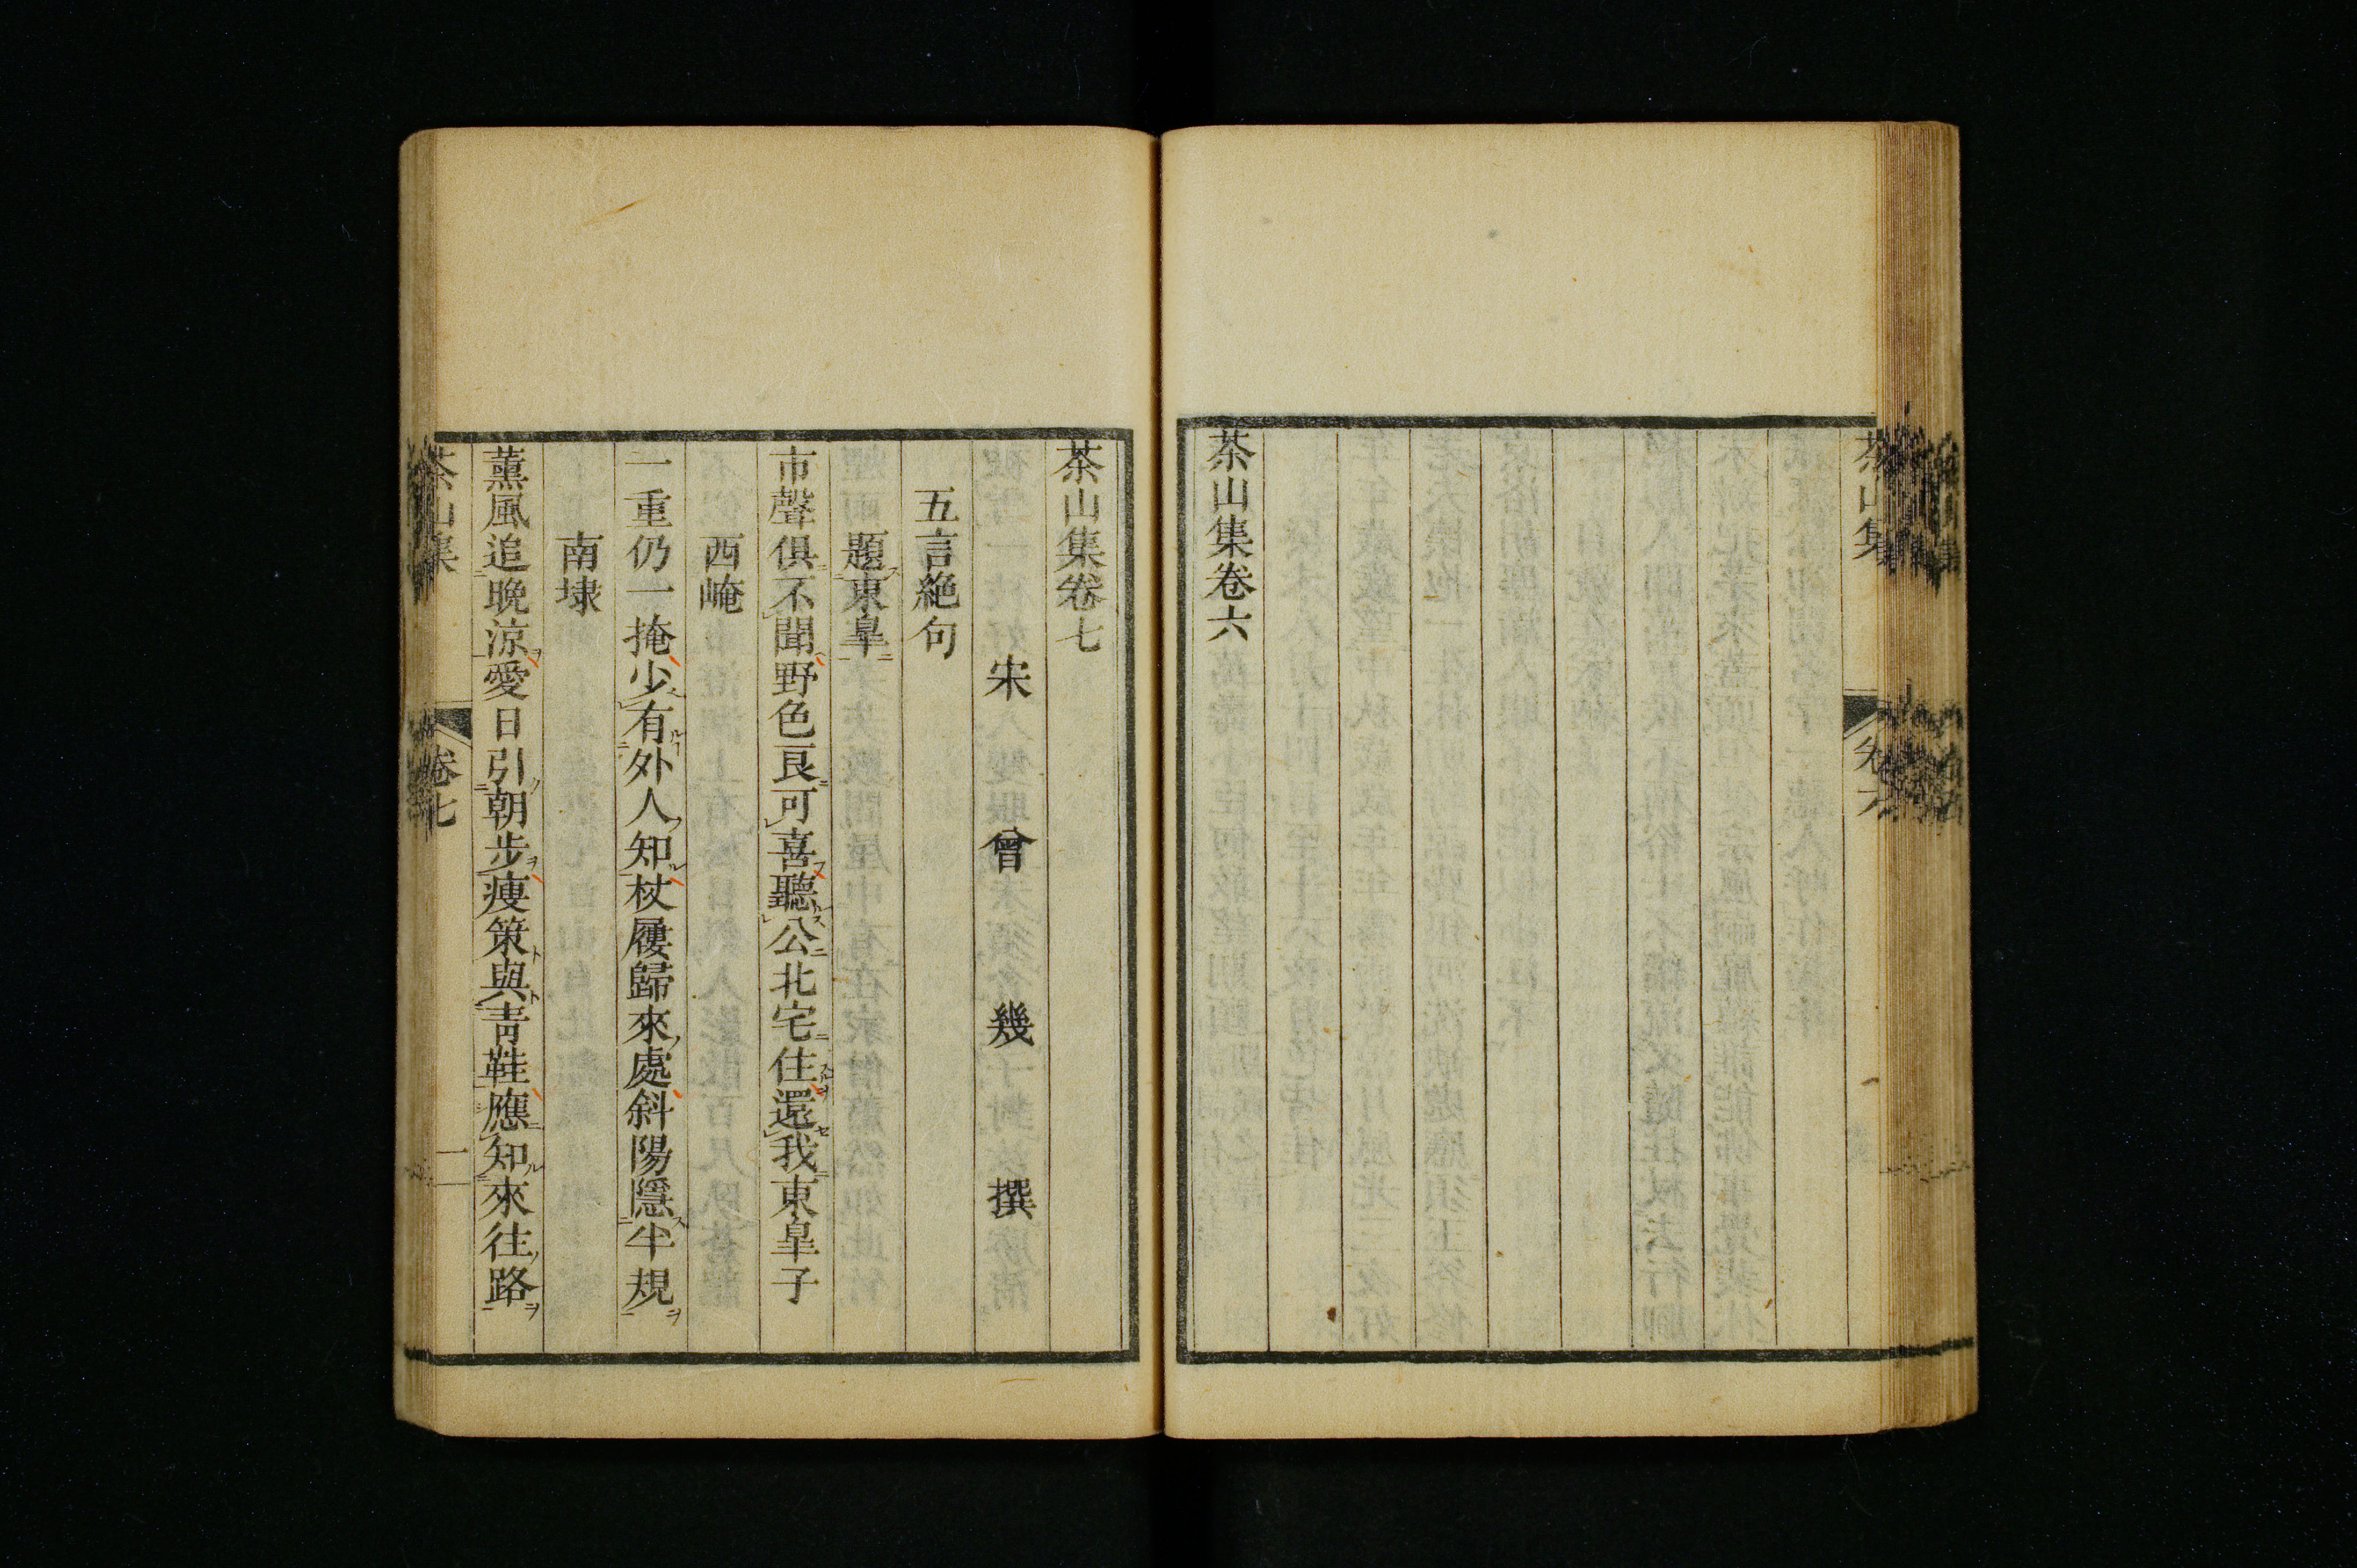 茶山集
茶山集卷六
茶山集卷七
宋 曾 幾 撰
五言絶句
題東皐
市聲俱不聞野色良可喜聽公北宅住還我東皐子
西崦
一重仍一掩少有外人知杖屨歸來處斜陽隱半規
南埭
薰風追晚涼愛日引朝步瘦策與青鞋應知來往路
茶山集 卷七 一